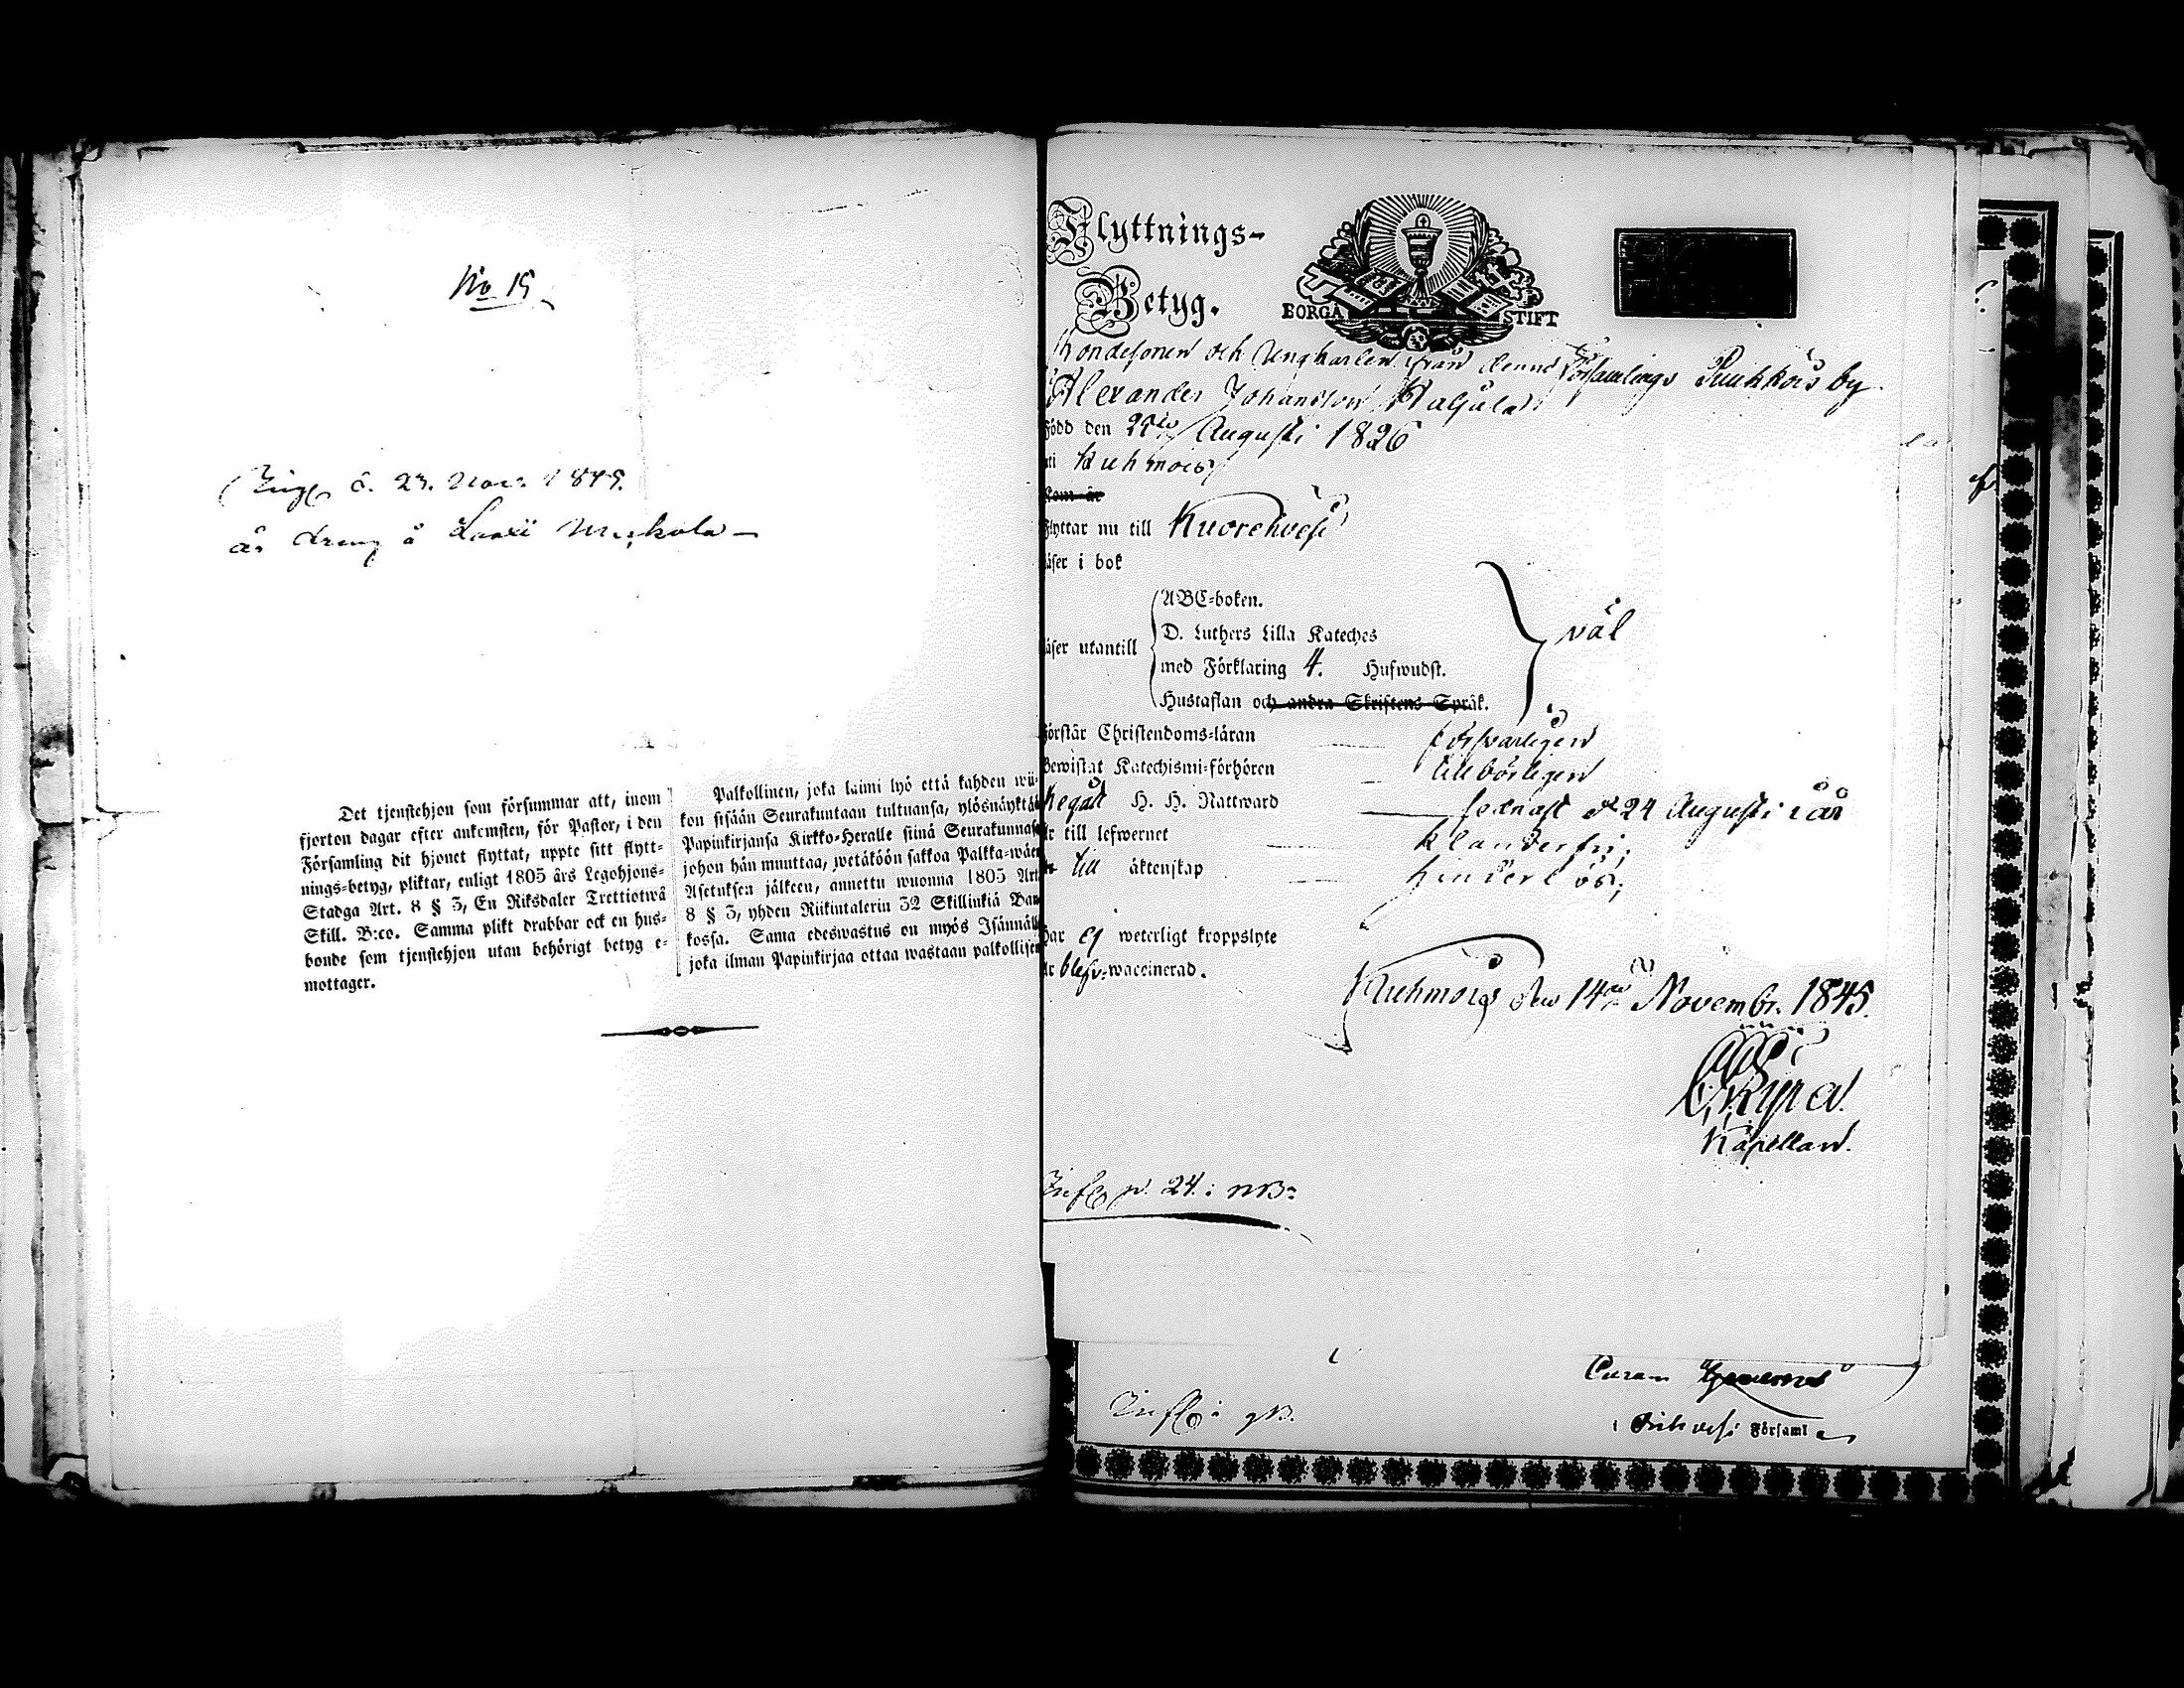 No 15
d. 23. Nov. 1845.
är dreng å
Det tjenstehjon som försummar att, inom
fjorton dagar efter ankomsten, för Pastor, i den
Församling dit hjonet flyttat, uppte sitt flytt-
nings-betyg, pliktar, enligt 1805 års Legohjons-
Stadga Art. 8 § 3, En Riksdaler Trettiotwå
Skill. B:co. Samma plikt drabbar ock en hus-
bonde som tjenstehjon utan behörigt betyg e-
mottager.
Palkollinen, joka laimi lyö että kahden wii-
kon sisään Seurakuntaan tultuansa, ylösnäyttä
Papinkirjansa Kirkko-Heralle siinä Seurakunnas
johon hän muuttaa, wetäköön sakkoa Palkka-wäen
Asetuksen jälkeen, annettu wuonna 1805 Art.
8 § 3, yhden Riikintalerin 32 Skillinkiä Ban
kossa. Sama edeswastus on myös Isännäll
joka ilman Papinkirjaa ottaa wastaan palkollisen
Flyttnings-
Betyg.
BORGÅ STIFT
Bondesonen och Ungkarlen från denne Församlings Puukkois by
Alexander Johansson
Född den Augusti 1826
uti Kuhmois
Kom år
Flyttar nu till Kuorehvesi
äser i bok
ABC-boken.
D. Luthers Lilla Kateches
äser utantill
med Förklaring 4. Hufwudst.
Hustaflan och andra Skriftens Språk.
väl
örstår Christendoms-läran försvarligen
Bewistat Katechismi-förhören tillbörligen
Begått H. H. Nattward sednast d 24 Augusti i år
Är till lefwernet klanderfri;
till äktenskap hinderlös;
Har ej weterligt kroppslyte
Är blefv. waccinerad.
Kuhmois den 14de Novembr. 1845.
Kapellan.
p. 24.
församl